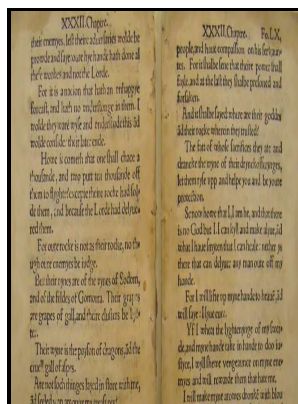 XXXII. Chapter.
their enemyes, lest their aduersaries wolde be
proude and saye: oure hye hande hath done all
these workes and not the Lorde.
For it is a nacion that hath an vnhappye
forcast, and hath no vnderstonge in them. I
wolde they were wyse and vnderstode this ãd
wolde consider their later ende.
Howe is cometh that one shall chace a
thousande, and two putt ten thousande off
them to flyghte? excepte theire rocke had solde
de them, and because the Lorde had delyue-
red them.
For oure rocke is not as their rocke, no tho
ugh oure enemyes be iudge.
But their vynes are of the vynes of Sodom,
and of the fildes of Gomorra. Their grapes
are grapes of gall, and theire clusters be bytte
ter.
Their wyne is the poyson of dragons, ãd the
cruell gall of aspes.
Are not soch thinges layed in store with me,
ãd
XXXII. Chapter. Fo. LX.
people, and haue compassion on his seruaun
tes. For it shalbe sene that theire power shall
fayle, and at the last they shalbe presoned and
forsaken.
And it shalbe sayed: where are their goddes
ãd their rocke wherein they trusted?
The fatt of whose sacrifices they ate and
drancke the wyne of their dryncksofferynges,
let them ryse vpp and helpe you and be youre
protection.
Se now howe that I, I am he, and that there
is no God but I. I can kyll and make alyue, ãd
what I haue smyten that I can heale: nether ys
there that can delyuer any man oute off my
hande.
For I will lifte vp myne hande to heauẽ, ãd
will saye: I lyue euer.
Yf I whett the lyghtenynge of my swer
de, and myne hande take in hande to doo ius-
tyce, I will shewe vengeaunce on myne ene-
myes and will rewarde them that hate me.
I will make myne arowes dronke with blou